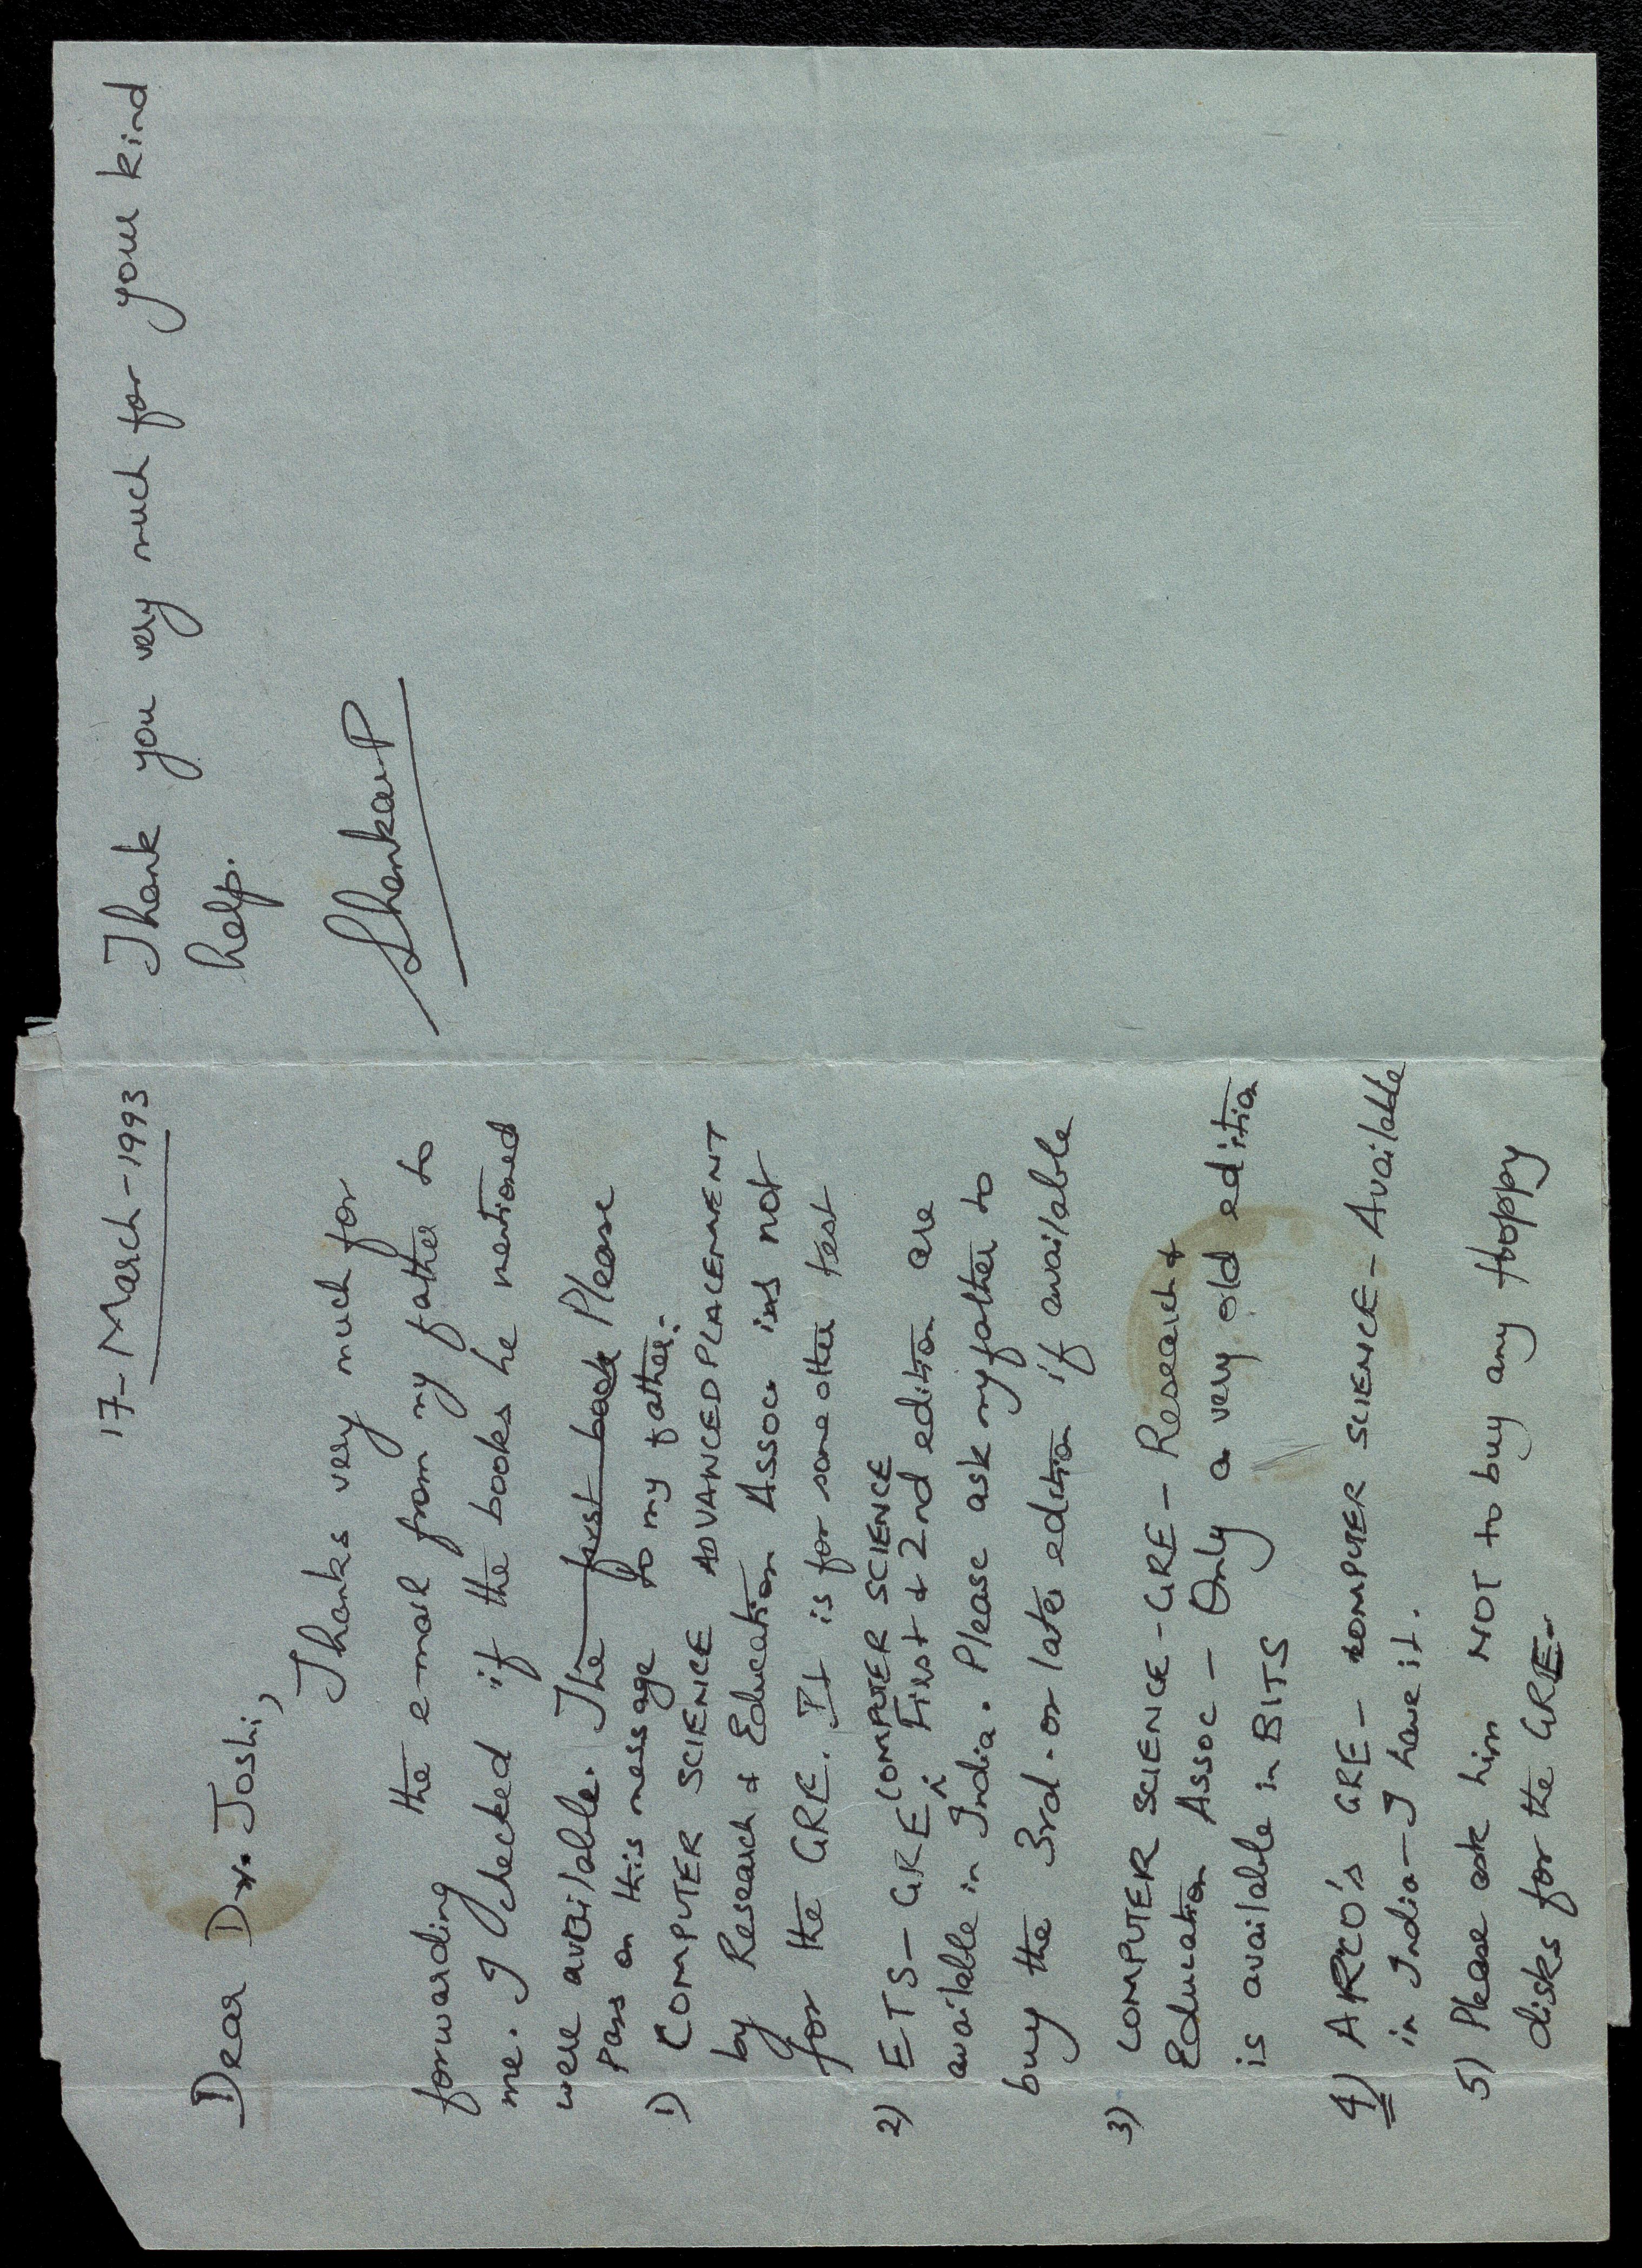 17-March-1993
Dear Dr. Joshi,
Thanks very much for
forwarding the e-mail from my father to
me. I checked if the books he mentioned
were available. The first book Please
Pass on this message to my father:-
1) COMPUTER SCIENCE ADVANCED PLACEMENT
by Research & Education Assoc is not
for the GRE. It is for some other test
2) ETS - GRE COMPUTER SCIENCE First & 2nd edition are
available in India. Please ask my father to
buy the 3rd. or later edition if available
3) COMPUTER SCIENCE - GRE - Research &
Education Assoc - Only a very old edition
is available in BITS
4) ARCO's GRE - COMPUTER SCIENCE - Available
in India - I have it.
5) Please ask him NOT to buy any floppy
disks for the GRE.
Thank you very much for your kind
help.
ShankarP